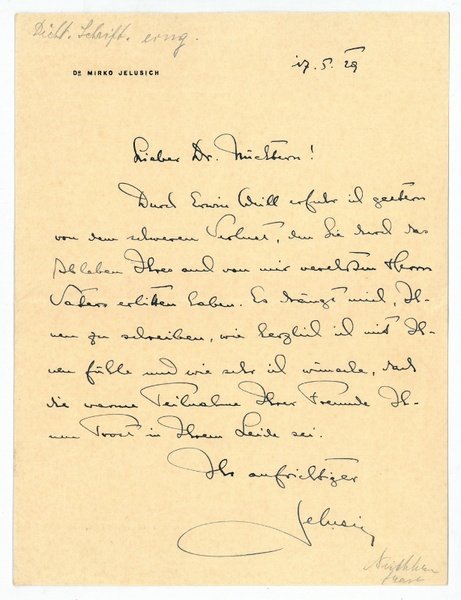 Dicht. Schrift. erng.
DR MIRKO JELUSICH
17. 5. 29
Lieber Dr. Nüchtern!
Durch Erwin Weill erfuhr ich gestern
von dem schweren Verlust, den Sie durch das
Ableben Ihres auch von mir verehrten Herrn
Vaters erlitten haben. Es drängt mich, Ih-
nen zu schreiben, wie herzlich ich mit Ih-
nen fühle und wie sehr ich wünsche, dass
die warme Teilnahme Ihrer Freunde Ih-
nen Trost in Ihrem Leide sei.
Ihr aufrichtiger
Jelusich